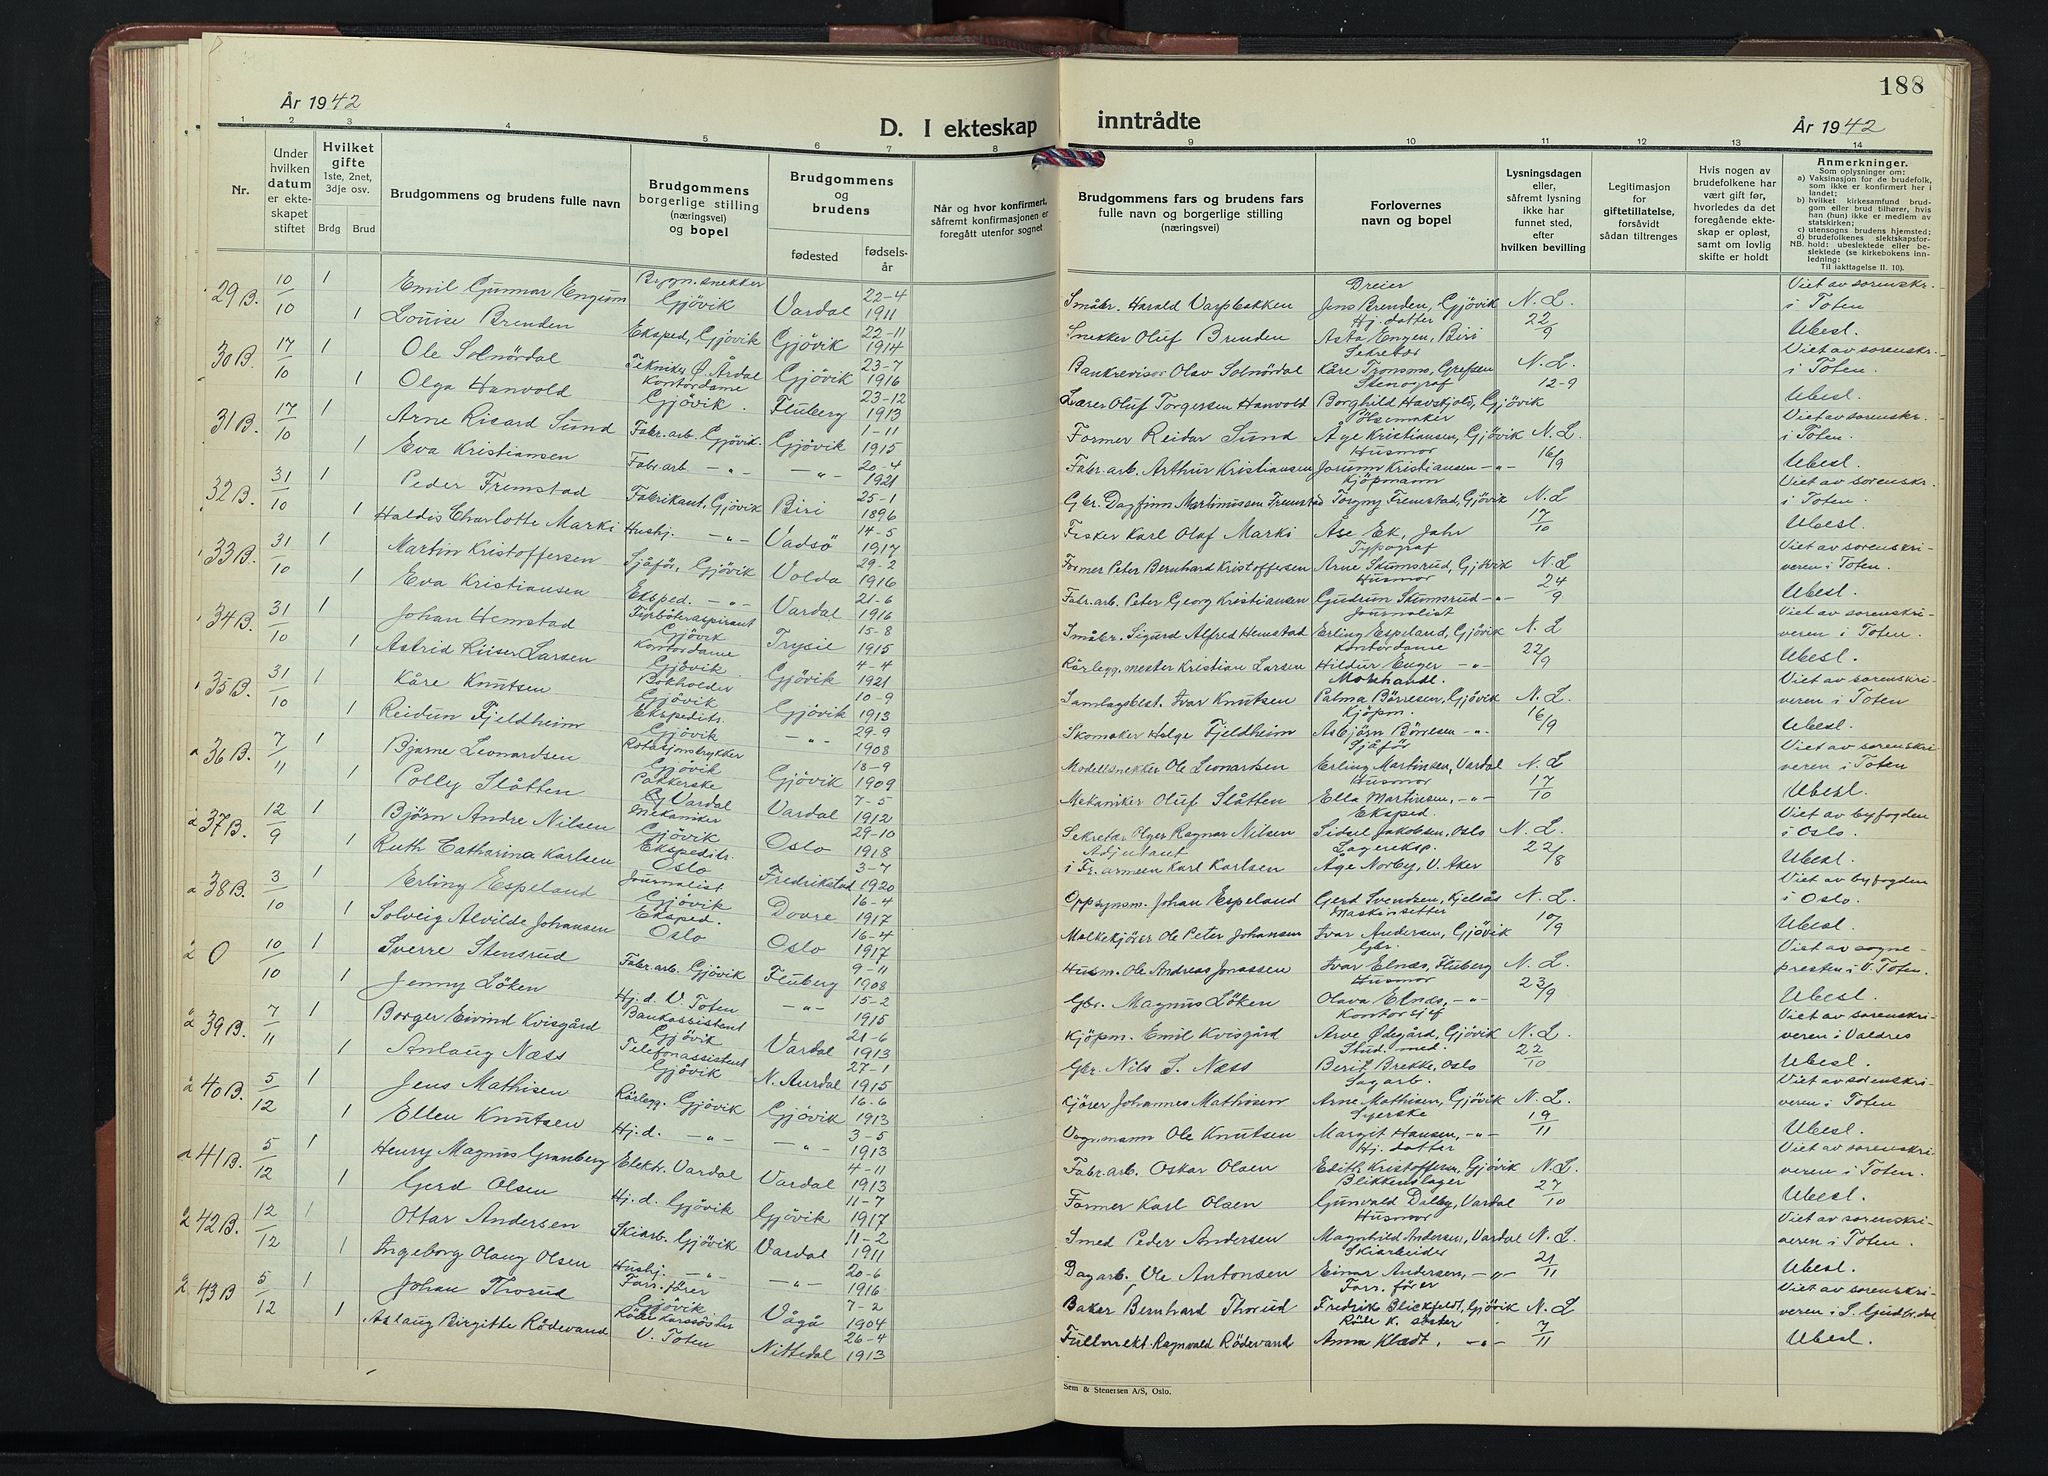 188
År 1942
D. I ekteskap inntrådte
År 1942
1 2 3 4 5 6 7 8 9 10 11 12 13 14
Nr.
Under hvilken datum er ekteskapet stiftet
Hvilket gifte
1ste, 2net, 3dje osv.
Brdg Brud
Brudgommens og brudens fulle navn
Brudgommens borgerlige stilling (næringsvei) og bopel
Brudgommens og brudens
fødested
fødselsår
Når og hvor konfirmert, såfremt konfirmasjonen er foregått utenfor sognet
Brudgommens fars og brudens fars fulle navn og borgerlige stilling (næringsvei)
Forlovernes navn og bopel
Lysningsdagen eller, såfremt lysning ikke har funnet sted, efter hvilken bevilling
Legitimasjon for giftetillatelse, forsåvidt sådan tiltrenges
Hvis nogen av brudefolkene har vært gift før, hvorledes da det foregående ekteskap er opløst, samt om lovlig skifte er holdt
Anmerkninger.
Som oplysninger om:
a) Vaksinasjon for de brudefolk, som ikke er konfirmert her i landet;
b) hvilket kirkesamfund brudgom eller brud tilhører, hvis han (hun) ikke er medlem av statskirken;
c) utensogns brudens hjemsted;
d) brudefolkenes slektskapsforhold: ubeslektede eller beslektede (se kirkebokens innledning:
NB.
Til iakttagelse II. 10).
29B. 10/10 1 Emil Gunnar Engum Bygn.snekker Gjövik Vardal 22-4 1911 Småbr. Harald Varpbakken Dreier Jens Brenden, Gjövik N.L. 22/9 Viet av sorenskr. i Toten
1 Louise Brenden Eksped, Gjövik Gjövik 22-11 1914 Snekker Oluf Brenden Hj.datter Asta Engen, Biri Ubesl.
30B. 17/10 1 Ole Solnördal Tekniker Ø. Årdal Gjövik 23-7 1916 Bankrevisor Olav Solnördal Sekretær Kåre Tronsmo, Grefsen N.L. 12-9 Viet av sorenskr. i Toten.
1 Olga Hanvold Kontordame Gjövik. Fluberg 23-12 1913 Lærer Oluf Torgersen Hanvold Stenograf Borghild Havskjold, Gjövik Ubesl.
31B. 17/10 1 Arne Ricard Sund Fabr.arb. Gjövik. Gjövik 1-11 1915 Former Reidar Sund Pölsemaker Åge Kristiansen, Gjövik N.L. 16/9 Viet av sorenskr. i Toten.
1 Eva Kristiansen Fabr.arb -"- -"- 20-4 1921 Fabr.arb. Arthur Kristiansen Husmor Jorunn Kristiansen -"- Ubesl.
32B. 31/10 1 Peder Fremstad Fabrikant, Gjövik Biri 25-1 1896 Gbr. Dagfinn Martinussen Fremstad Kjöpmann Torgny Fremstad, Gjövik N.L 17/10 Viet av sorenskr. i Toten.
1 Haldis Charlotte Marki Hushj. -"- Vadsö 14-5 1917 Fisker Karl Olaf Marki Åse Ek, Jahr Ubesl.
33B. 31/10 1 Martin Kristoffersen Sjåfö, Gjövik Volda 29-2 1916 Former Peter Bernhard Kristoffersen Typograf Arne Skumsrud, Gjövik N.L 24/9 Viet av sorenskriveren i Toten.
1 Eva Kristiansen Eksped. -"- Vardal 21-6 1916 Fabr.arb. Peter Georg Kristiansen Husmor Gudrun Skumsrud -"- Ubesl.
34B. 31/10 1 Johan Hemstad Fyrböteraspirant Gjövik Trysil 15-8 1915 Småbr. Sigurd Alfred Hemstad Journalist Erling Espeland, Gjövik N.L 22/9 Viet av sorenskriveren i Toten.
1 Astrid Riiser Larsen Kontordame Gjövik Gjövik 4-4 1921 Rörlegg.mester Kristian Larsen Kontordame Hildur Enger -"- Ubesl.
35B. 31/10 1 Kåre Knutsen Bokholder Gjövik Gjövik 10-9 1913 Samlagsbest. Ivar Knutsen Morhandl. Palma Börresen, Gjövik N.L 16/9 Viet av sorenskriveren i Toten
1 Reidun Fjeldheim Ekspeditr. Gjövik -"- 29-9 1908 Skomaker Helge Fjeldheim Kjöpm. Asbjörn Börresen -"- Ubesl.
36B. 7/11 1 Bjarne Leonardsen Rotasjonstrykker Gjövik Gjövik 18-9 1909 Modellsnekker Ole Leonartsen Sjåför Erling Martinsen, Vardal N.L 17/10 Viet av sorenskriveren i Toten
1 Polly Slåtten Pakkerske Vardal Vardal 7-5 1912 Mekaniker Oluf Slåtten Husmor Ella Martinsen, -"- Ubesl.
37B. 12/9 1 Björn Andre Nilsen Mekaniker Gjövik Oslo 29-10 1918 Sekretær Olger Ragnar Nilsen Eksped. Sidsel Jakobsen, Oslo N.L. 22/8 Viet av byfogden i Oslo.
1 Ruth Catharina Karlsen Ekspeditr. Oslo Fredrikstad 3-7 1920 Adjutant i Fr.armeen Karl Karlsen Lagereksp. Åge Norby, V. Aker Ubesl.
38B. 3/10 1 Erling Espeland Journalist Gjövik Dovre 16-4 1917 Oppsynsm. Johan Espeland Gerd Svendsen, Kjelsås N.L. 10/9 Viet av byfogden i Oslo.
1 Solveig Alvilde Johansen Eksped. Oslo Oslo 16-4 1917 Melkekjörer Ole Peter Johansen Maskinsetter Ivar Andersen, Gjövik Ubesl.
0 10/10 1 Sverre Stensrud Fabr.arb. Gjövik Fluberg 9-11 1908 Husm. Ole Andreas Jonassen Gbr. Ivar Elnæs, Fluberg N.L. 23/9 Viet av sognepresten i V. Toten.
1 Jenny Löken Hj.d. V. Toten -"- 15-2 1915 Gbr. Magnus Löken Husmor Olava Elnæs, -"- Ubesl.
39B. 7/11 1 Borger Eivind Kvisgård Bankassistent Gjövik Vardal 21-6 1913 Kjöpm. Emil Kvisgård Kontorsjef Arne Ødegård, Gjövik N.L. 22/10 Viet av sorenskriveren i Valdres
1 Anlaug Næss Telefonassistent Gjövik N. Aurdal 27-1 1915 Gbr. Nils S. Næss Stud. med. Berit Brekke, Oslo Ubesl.
40B. 5/12 1 Jens Mathisen Rörlegg. Gjövik Gjövik 16-6 1913 Kjörer Johannes Mathisen Sagarb. Arne Mathisen, Gjövik N.L. 19/11 Viet av sorenskriveren i Toten
1 Ellen Knutsen Hj.d. -"- -"- 3-5 1913 Vognmann Ole Knutsen Syerske Margit Hansen, -"- Ubesl.
41B. 5/12 1 Henry Magnus Granberg Elektr. Vardal Vardal 4-11 1913 Fabr.arb. Oskar Olsen Hj. datter Edith Kristoffersen, Gjövik N.L. 27/10 Viet av sorenskriveren i Toten.
1 Gerd Olsen Hj.d. Gjövik Gjövik 11-7 1917 Former Karl Olsen Blikkenslager Gunvald Dalby, Vardal Ubesl.
42B. 12/12 1 Ottar Andersen Skiarb. Gjövik Vardal 11-2 1911 Smed Peder Andersen Husmor Magnhild Andersen, Vardal N.L. 21/11 Viet av sorenskriveren i Toten.
1 Ingeborg Olaug Olsen Hushj. -"- -"- 20-6 1916 Dagarb. Ole Antonsen Skiarbeider Einar Andersen, -"- Ubesl.
43B 5/12 1 Johan Thorud Forr.förer Gjövik Vågå 7-2 1904 Baker Bernhard Thorud Forr. förer Fredrik Blickfeldt, Gjövik N.L 7/11 Viet av sorenskriveren i S. Gudbr.dal
1 Aslaug Birgitte Rödevand Röde Korssöster V. Toten Nittedal 26-4 1913 Fullmekt. Ragnvald Rödevand Röde K. söster Anna Klædt, -"- Ubesl.
Sem & Stenersen A/S, Oslo.